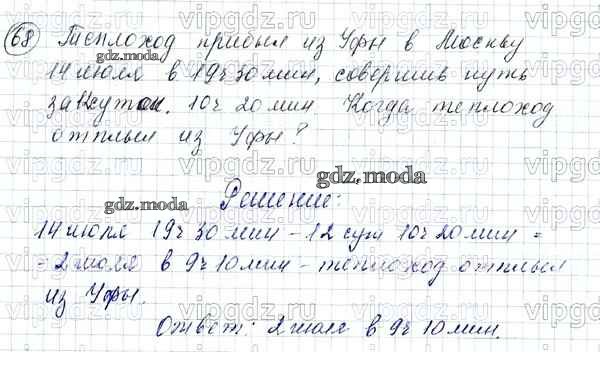 68 Теплоход прибыл из Уфы в Москву
gdz.moda
14 июля в 19ч 30 мин, совершив путь
за 12 суток. 10ч 20 мин Когда теплоход
отплыл из Уфы?
gdz.moda
gdz.moda
Решение:
14 июля 19ч 30 мин - 12 сут 10ч 20 мин =
- 2 июля в 9ч 10 мин - теплоход отплыл
из Уфы.
Ответ: 2 июля в 9ч 10 мин.
vipgdz.ru